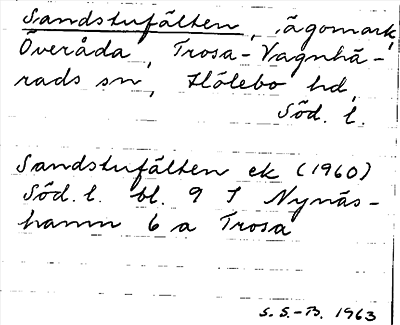 Sandstufälten, ägomark,
Överåda, Trosa-Vagnhä-
rads sn, Hölebo hd,
Söd. l.
Sandstufälten ek (1960)
Söd. l. bl. 9 I Nynäs-
hamn 6 a Trosa
S. S.-B. 1963